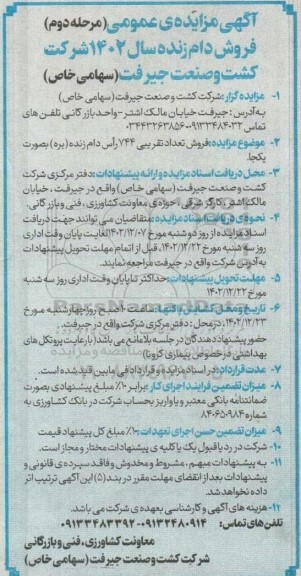 آگهی مزایده ی عمومی (مرحله دوم)
فروش دام زنده سال ۱۴۰۲ شرکت
کشت و صنعت جیرفت (سهامی خاص)
۱- مزایده گزار: شرکت کشت و صنعت جیرفت (سهامی خاص)
به آدرس: جیرفت خیابان مالک اشتر - واحد بازرگانی تلفن های
تماس ۰۹۱۳۳۴۸۴۰۳۲ - ۰۳۴۴۳۲۶۳۸۵۶
۲- موضوع مزایده: فروش تعداد تقریبی ۷۴۴ رأس دام زنده (بره) بصورت
یکجا.
۳- محل دریافت اسناد مزایده و ارائه پیشنهادات: دفتر مرکزی شرکت
کشت و صنعت جیرفت (سهامی خاص) واقع در جیرفت، خیابان
مالک اشتر، کارگر شرقی، حوزه ی معاونت کشاورزی، فنی و بازرگانی.
۴- نحوه ی دریافت اسناد مزایده: متقاضیان می توانند جهت دریافت
اسناد مزایده از روز دوشنبه مورخ ۱۴۰۲/۱۲/۰۷ لغایت پایان وقت اداری
روز سه شنبه مورخ ۱۴۰۲/۱۲/۲۲، قبل از اتمام مهلت تحویل پیشنهادات
به آدرس شرکت واقع در جیرفت مراجعه نمایند.
۵- مهلت تحویل پیشنهادات: حداکثر تا پایان وقت اداری روز سه شنبه
مورخ ۱۴۰۲/۱۲/۲۲
۶- تاریخ و محل گشایش پاکتها: ساعت ۱۰ صبح روز چهارشنبه مورخ
۱۴۰۲/۱۲/۲۳، در محل: دفتر مرکزی شرکت واقع در جیرفت.
حضور پیشنهاد دهندگان در جلسه بلامانع می باشد (با رعایت پروتکل های
بهداشتی در خصوص بیماری کرونا)
۷- مدت قرارداد: در اسناد مزایده و قرارداد فی مابین قید شده است.
۸- میزان تضمین فرآیند اجرای کار: برابر ۱۰٪ مبلغ پیشنهادی بصورت
ضمانتنامه بانکی معتبر و یا واریز بحساب شرکت در بانک کشاورزی به
شماره ۸۴۰۶۵۰۹۸۴
۹- میزان تضمین حسن اجرای تعهدات: ۱۰٪ مبلغ کل پیشنهاد قیمت
۱۰- شرکت در رد یا قبول یک یا کلیه ی پیشنهادات مختار و مجاز است.
۱۱- به پیشنهادات مبهم، مشروط و مخدوش و فاقد سپرده ی قانونی و
پیشنهادات بعد از انقضای مهلت مقرر در بند (۵) این آگهی ترتیب اثر
داده نخواهد شد.
۱۲- هزینه های آگهی و کارشناسی بعهده ی شرکت می باشد.
تلفن های تماس: ۰۹۱۳۲۴۸۰۹۱۴ - ۰۹۱۳۳۴۸۳۳۹۲
معاونت کشاورزی، فنی و بازرگانی
شرکت کشت و صنعت جیرفت (سهامی خاص)